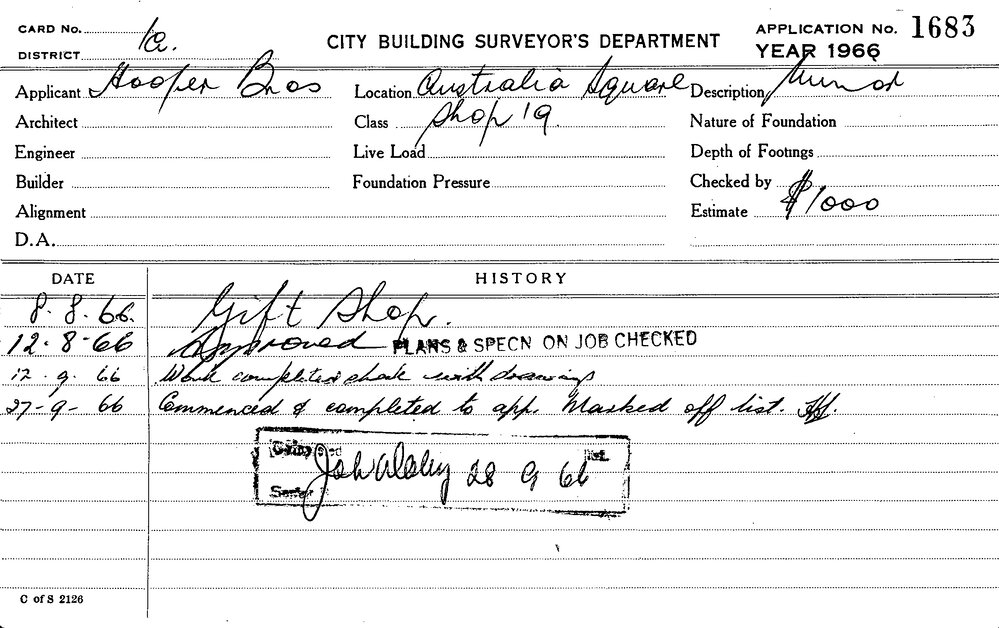 CARD No. 1a.
DISTRICT
CITY BUILDING SURVEYOR'S DEPARTMENT
APPLICATION No. 1683
YEAR 1966
Applicant Hooper Bros
Location Australia Square
Description Minor
Architect
Class Shop 19.
Nature of Foundation
Engineer
Live Load
Depth of Footings
Builder
Foundation Pressure
Checked by
Alignment
Estimate $1000
D.A.
DATE HISTORY
8.8.66. Gift Shop.
12-8-66 Approved PLANS & SPECN ON JOB CHECKED
12.9.66 Work completed check with drawings
27-9-66 Commenced & completed to app. Marked off list.
28 9 66
C of S 2126